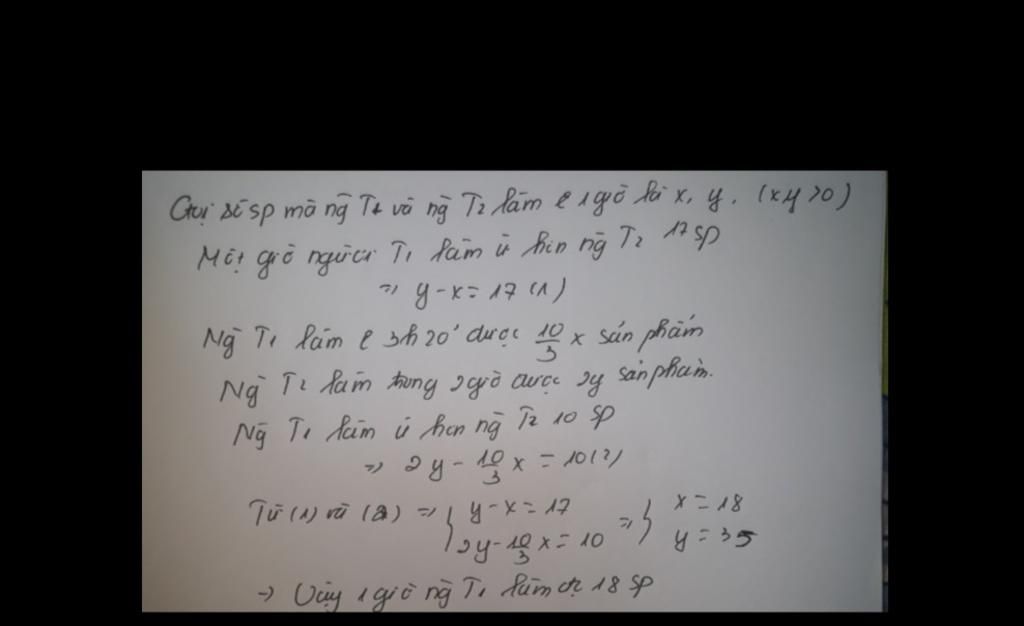 Gọi số sp mà ng̀ T1 và ng̀ T2 làm ℓ 1 giờ là x, y. (x,y >0)
Một giờ người T1 làm ít hơn ng̀ T2 17 sp
=> y - x = 17 (1)
Ng̀ T1 làm ℓ 3h20' được 10/3 x sản phẩm
Ng̀ T2 làm trong 2 giờ được 2y sản phẩm.
Ng̀ T1 làm ít hơn ng̀ T2 10 sp
=> 2y - 10/3 x = 10 (2)
Từ (1) và (2) => { y - x = 17 => { x = 18
2y - 10/3 x = 10 y = 35
-> Vậy 1 giờ ng̀ T1 làm đc 18 sp